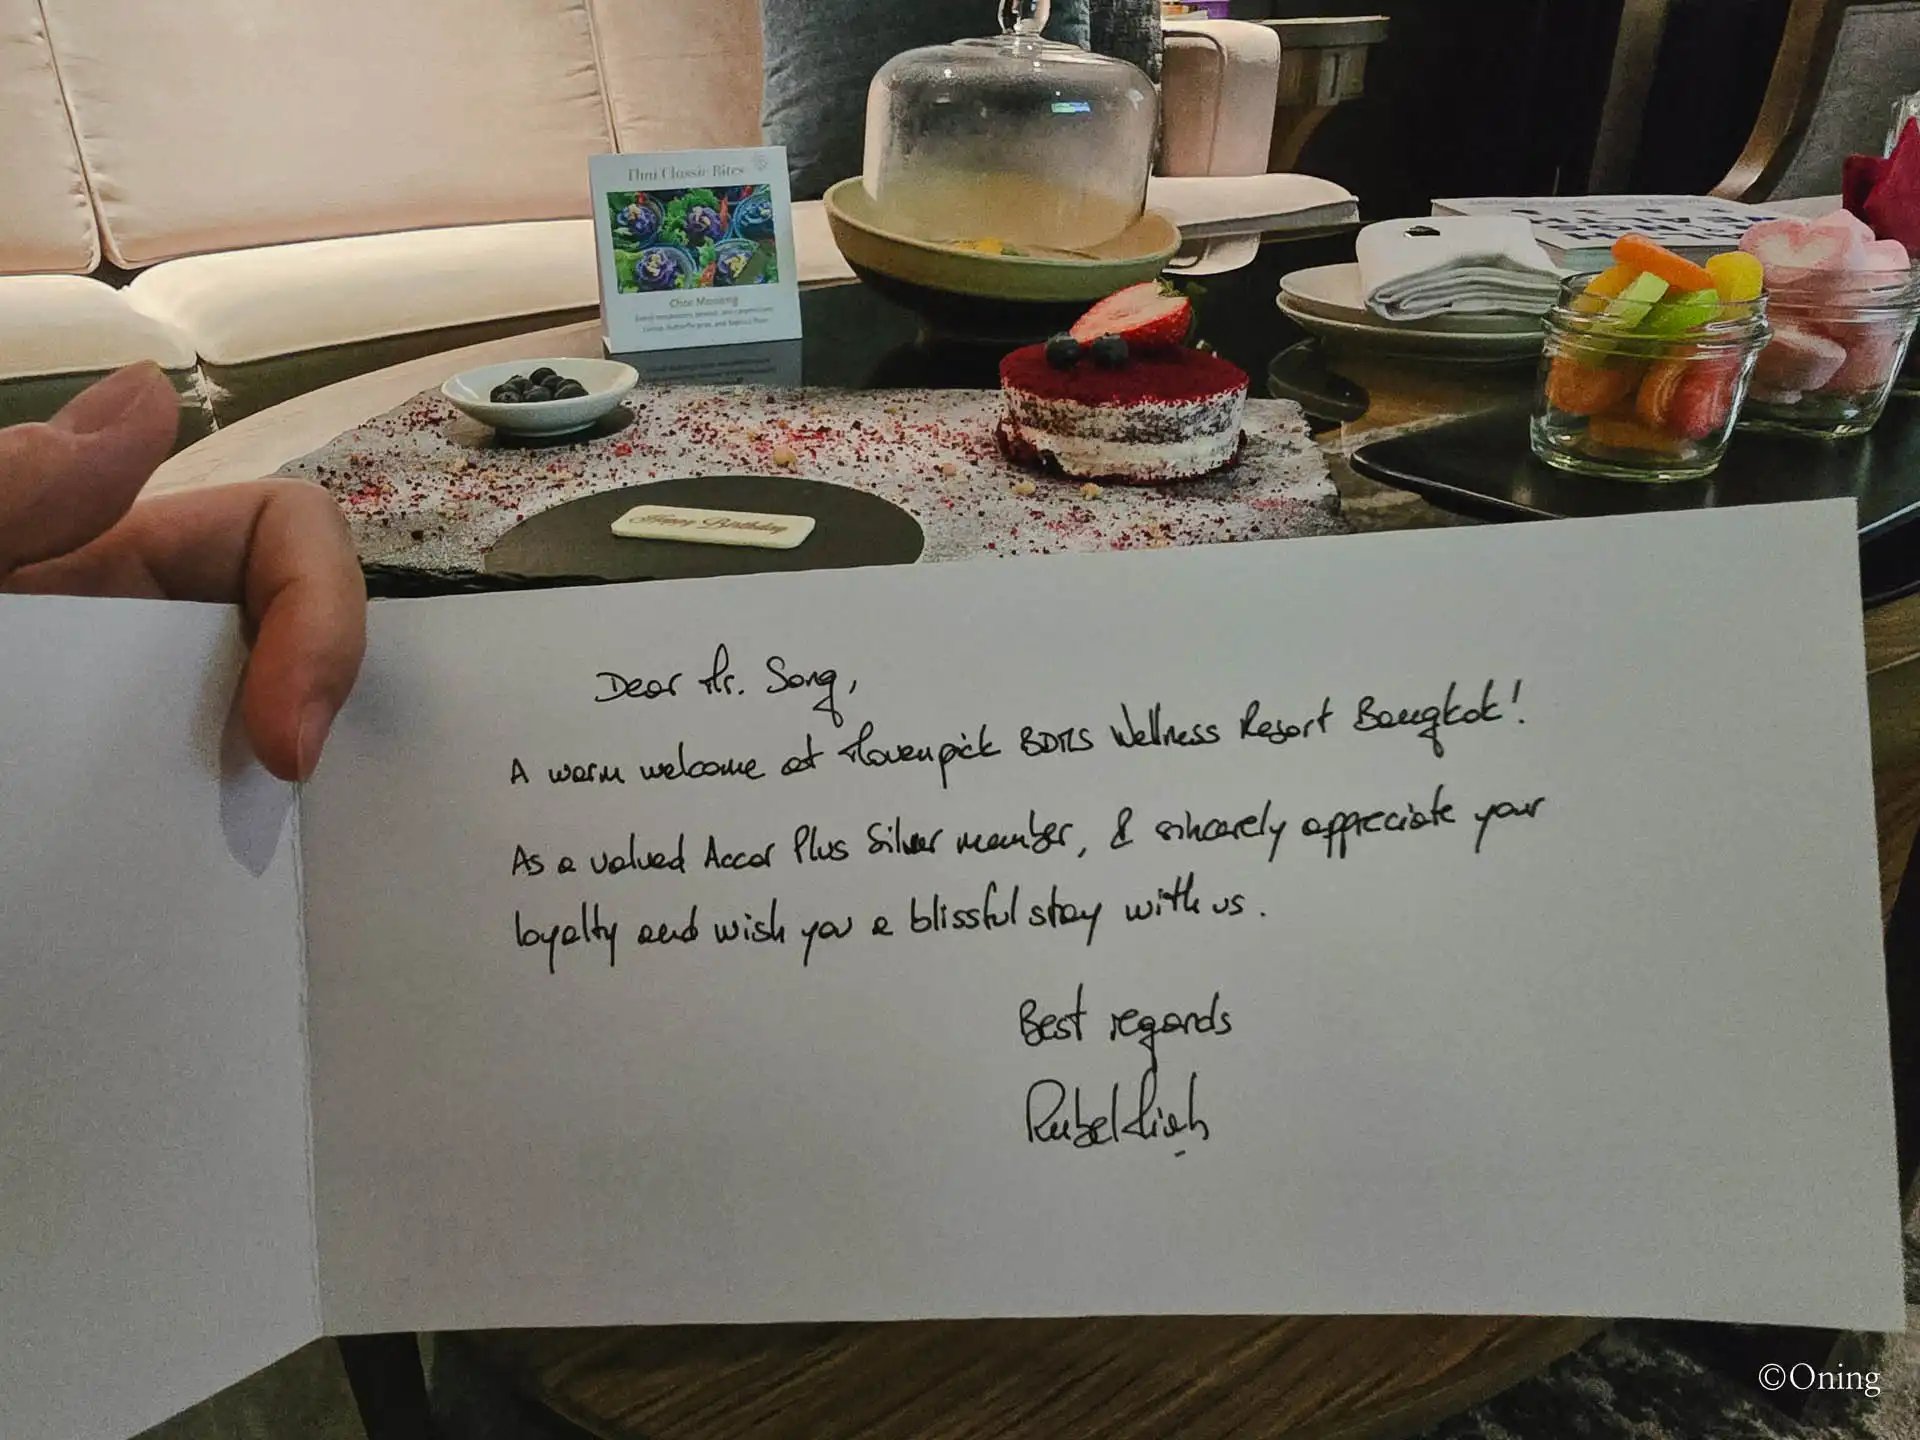 Thai Classic Bites
Chor Muang
Happy Birthday
Dear Mr. Song,
A warm welcome at Movenpick BDMS Wellness Resort Bangkok!
As a valued Accor Plus Silver member, I sincerely appreciate your
loyalty and wish you a blissful stay with us.
Best regards
©Oning